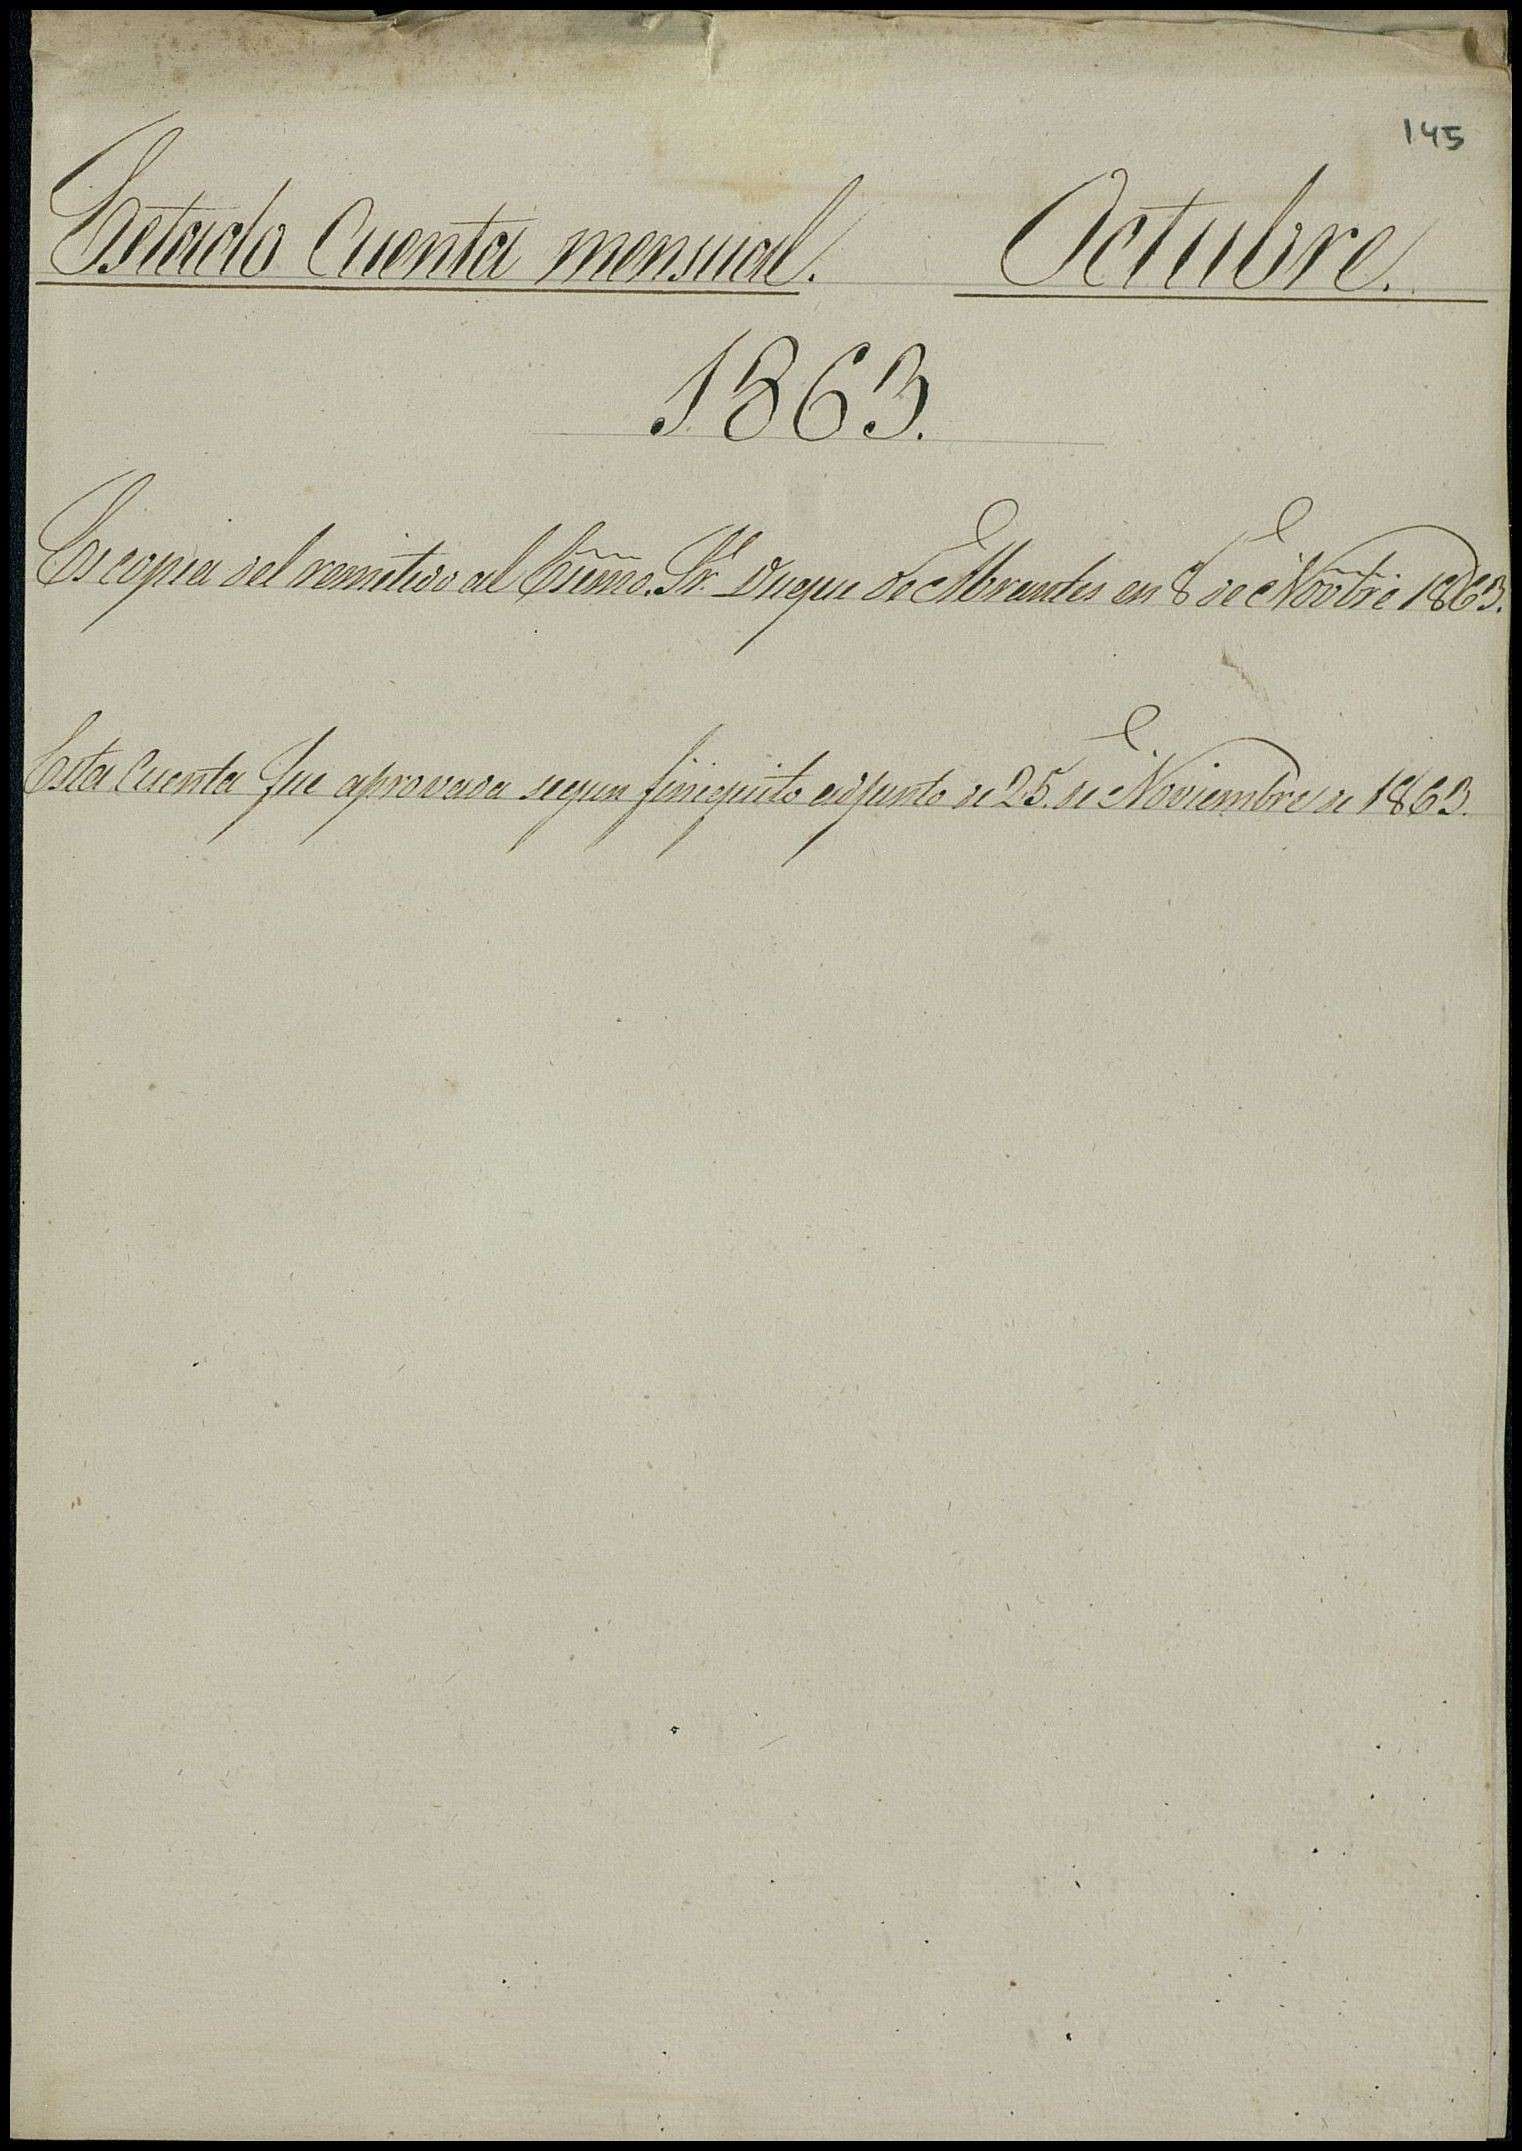 145
Estado Cuenta mensual. Octubre.
1863.
Es copia del remitido al Exmo. Sr. Duque de Abrantes en 8 de Novbre 1863.
Esta Cuenta fue aprovada segun finiquito adjunto de 25. de Noviembre de 1863.